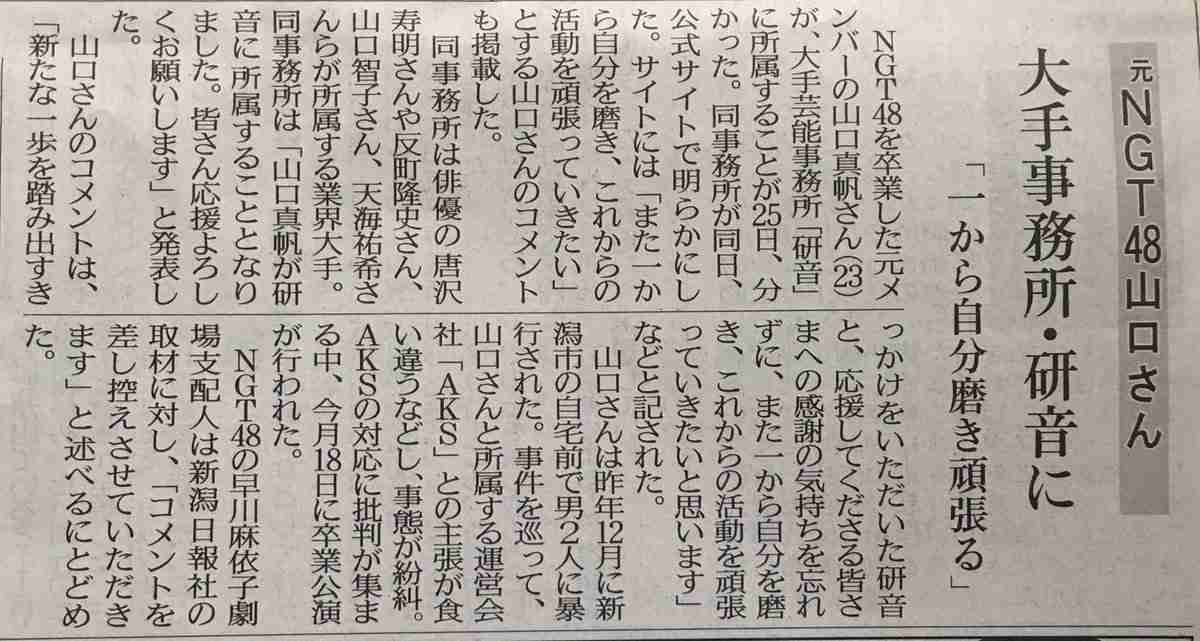 元NGT48山口さん
大手事務所・研音に
「一から自分磨き頑張る」
NGT48を卒業した元メ
ンバーの山口真帆さん(23)
が、大手芸能事務所「研音」
に所属することが25日、分
かった。同事務所が同日、
公式サイトで明らかにし
た。サイトには「また一か
ら自分を磨き、これからの
活動を頑張っていきたい」
とする山口さんのコメント
も掲載した。
同事務所は俳優の唐沢
寿明さんや反町隆史さん、
山口智子さん、天海祐希さ
んらが所属する業界大手。
同事務所は「山口真帆が研
音に所属することとなり
ました。皆さん応援よろし
くお願いします」と発表し
た。
山口さんのコメントは、
「新たな一歩を踏み出すき
っかけをいただいた研音
と、応援してくださる皆さ
まへの感謝の気持ちを忘れ
ずに、また一から自分を磨
き、これからの活動を頑張
っていきたいと思います」
などと記された。
山口さんは昨年12月に新
潟市の自宅前で男2人に暴
行された。事件を巡って、
山口さんと所属する運営会
社「AKS」との主張が食
い違うなどし、事態が紛糾。
AKSの対応に批判が集ま
る中、今月18日に卒業公演
が行われた。
NGT48の早川麻依子劇
場支配人は新潟日報社の
取材に対し、「コメントを
差し控えさせていただき
ます」と述べるにとどめ
た。